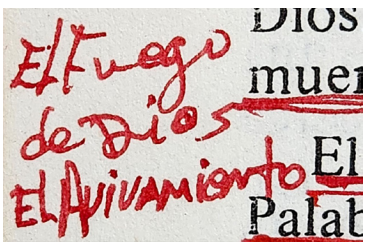 El Fuego
de Dios
El Avivamiento
Dios
muer
El
Palab